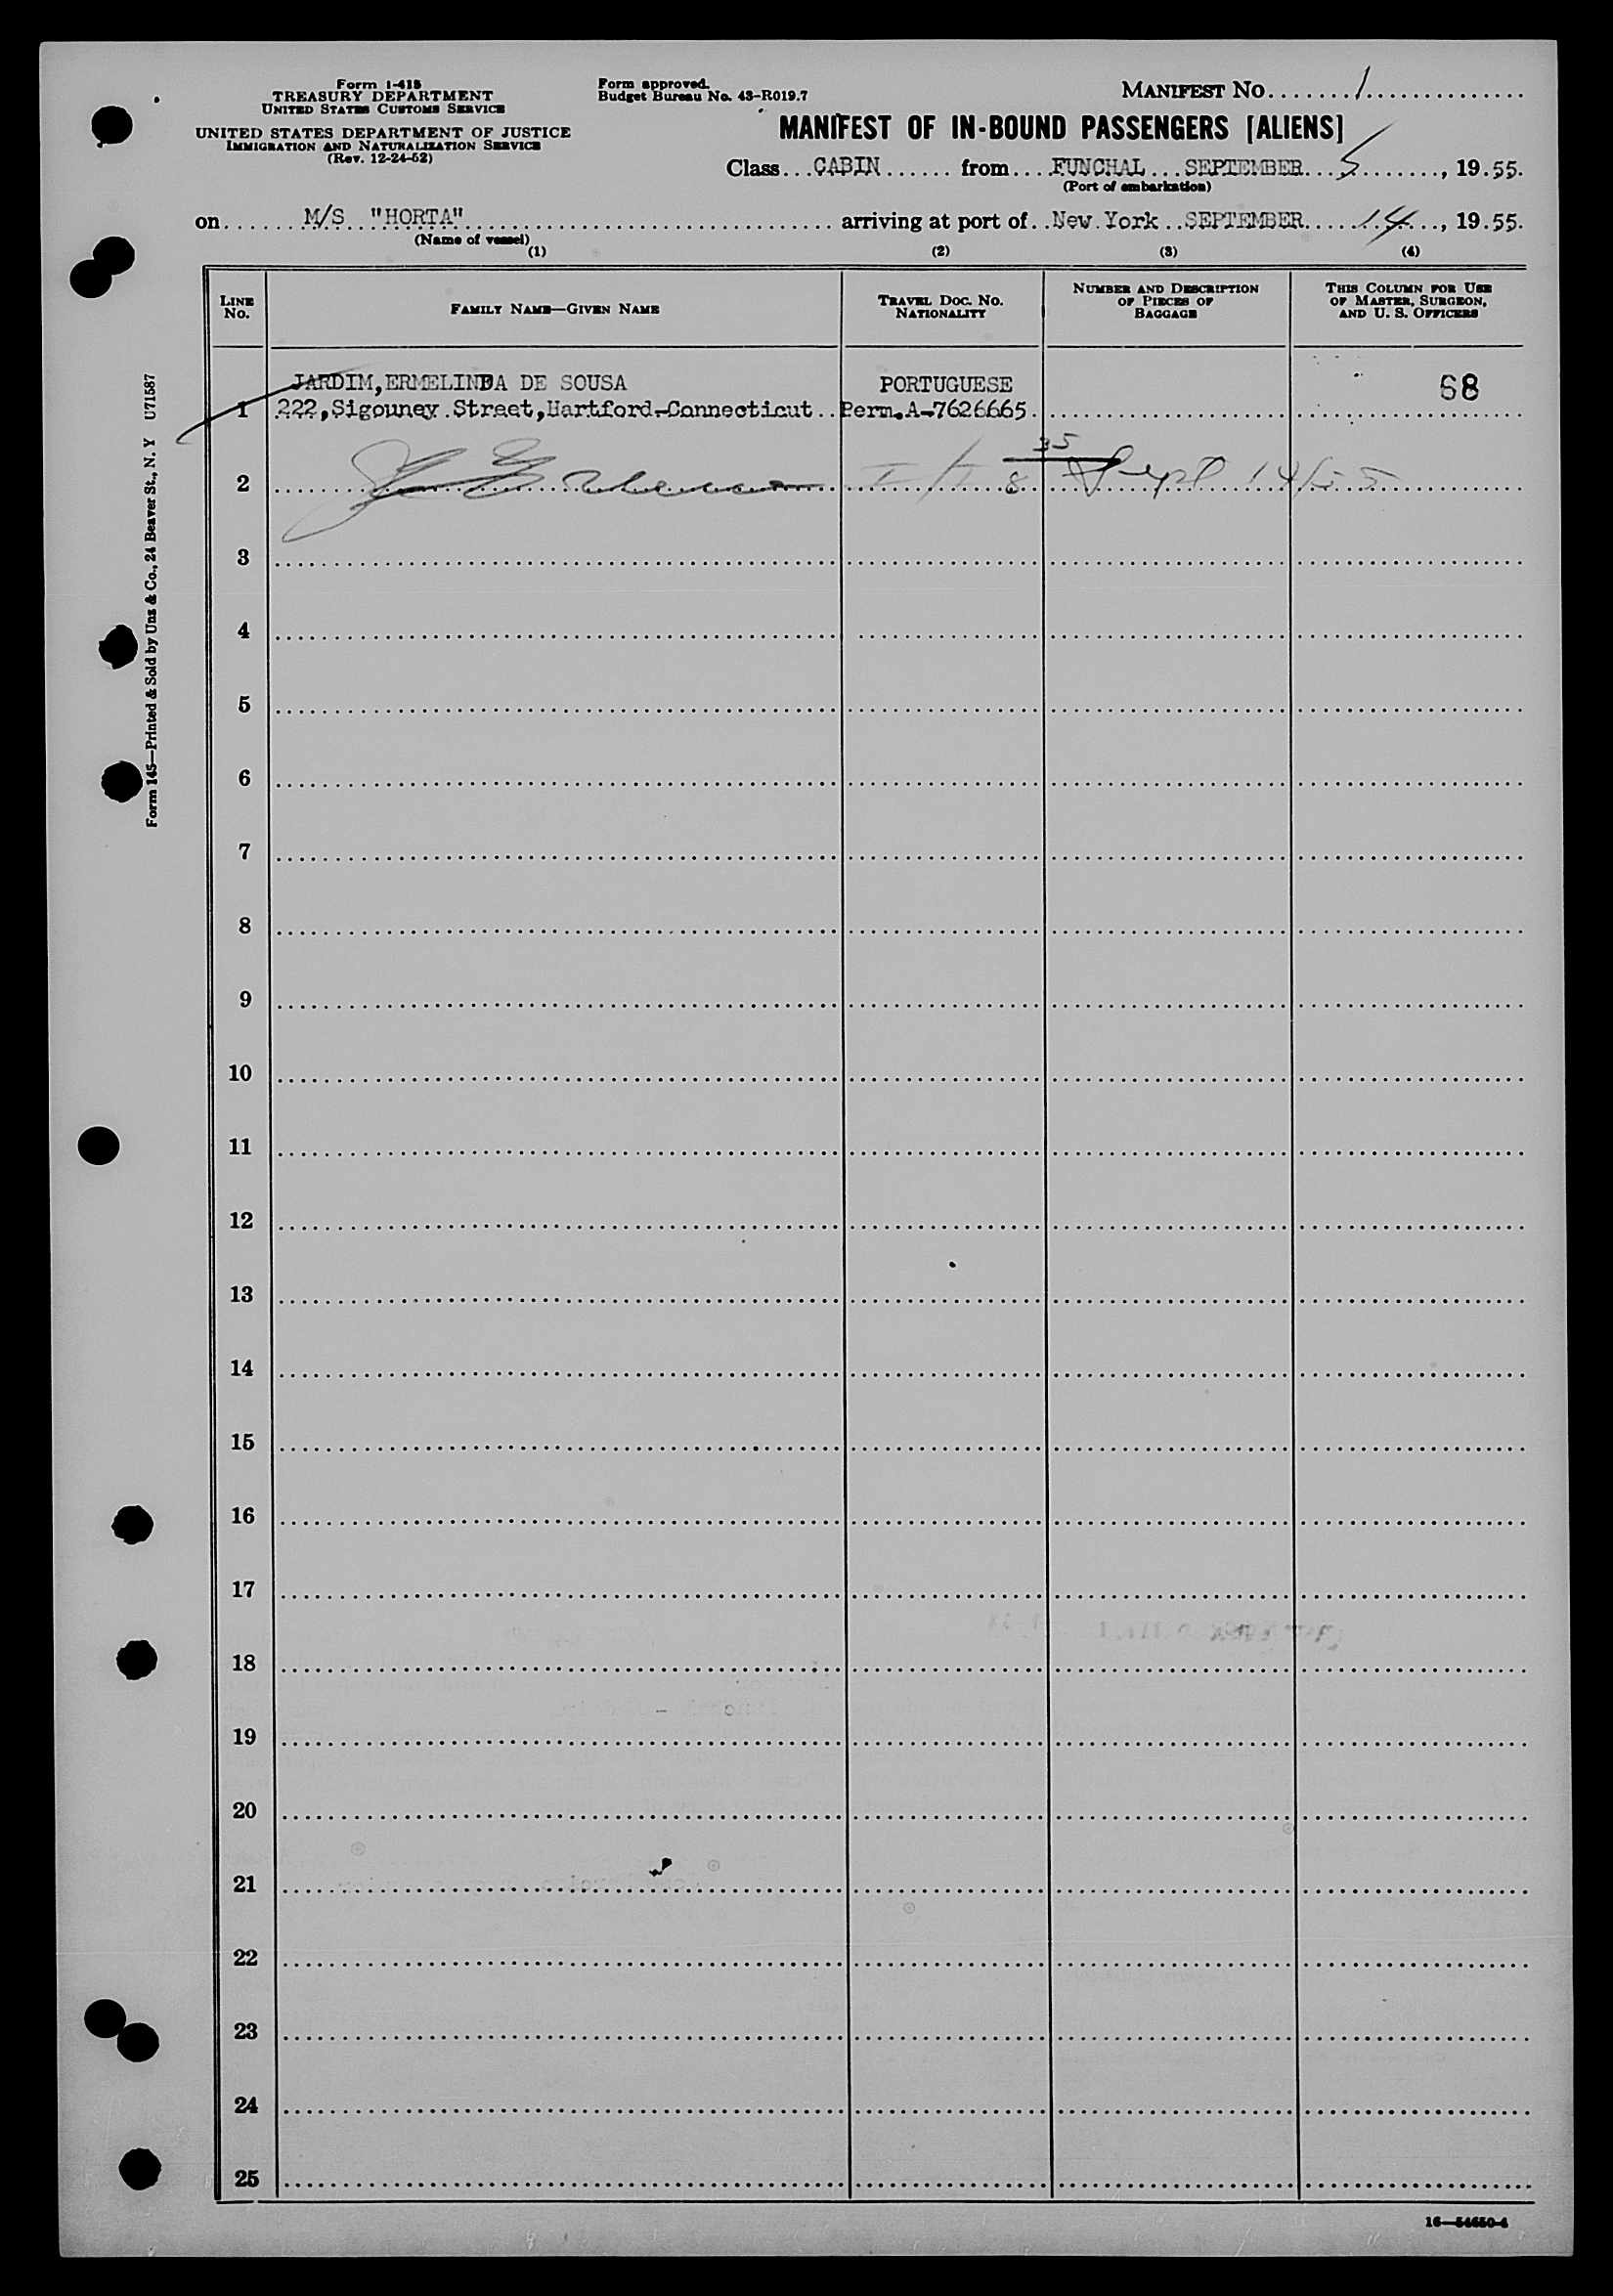 Form I-418
TREASURY DEPARTMENT
UNITED STATES CUSTOMS SERVICE
UNITED STATES DEPARTMENT OF JUSTICE
IMMIGRATION AND NATURALIZATION SERVICE
(Rev. 12-24-52)
Form approved.
Budget Bureau No. 43-R019.7
MANIFEST NO.......1..............
MANIFEST OF IN-BOUND PASSENGERS [ALIENS]
Class...CABIN...... from....FUNCHAL...SEPTEMBER...5......., 19.55.
(Port of embarkation)
on........M/S "HORTA"................................ arriving at port of..New.York..SEPTEMBER.....14...., 19.55.
(Name of vessel)
(1) (2) (3) (4)
LINE NO.
FAMILY NAME—GIVEN NAME
TRAVEL DOC. NO. NATIONALITY
NUMBER AND DESCRIPTION OF PIECES OF BAGGAGE
THIS COLUMN FOR USE OF MASTER, SURGEON, AND U. S. OFFICERS
JARDIM,ERMELINDA DE SOUSA PORTUGUESE 68
1 222,Sigouney.Street,Hartford-Connecticut..Perm.A-7626665.
35
2 I/I 8 Sept 14/55
3
4
5
6
7
8
9
10
11
12
13
14
15
16
17
18
19
20
21
22
23
24
25
16—54650-4
Form 145—Printed & Sold by Unz & Co., 24 Beaver St., N. Y U71587